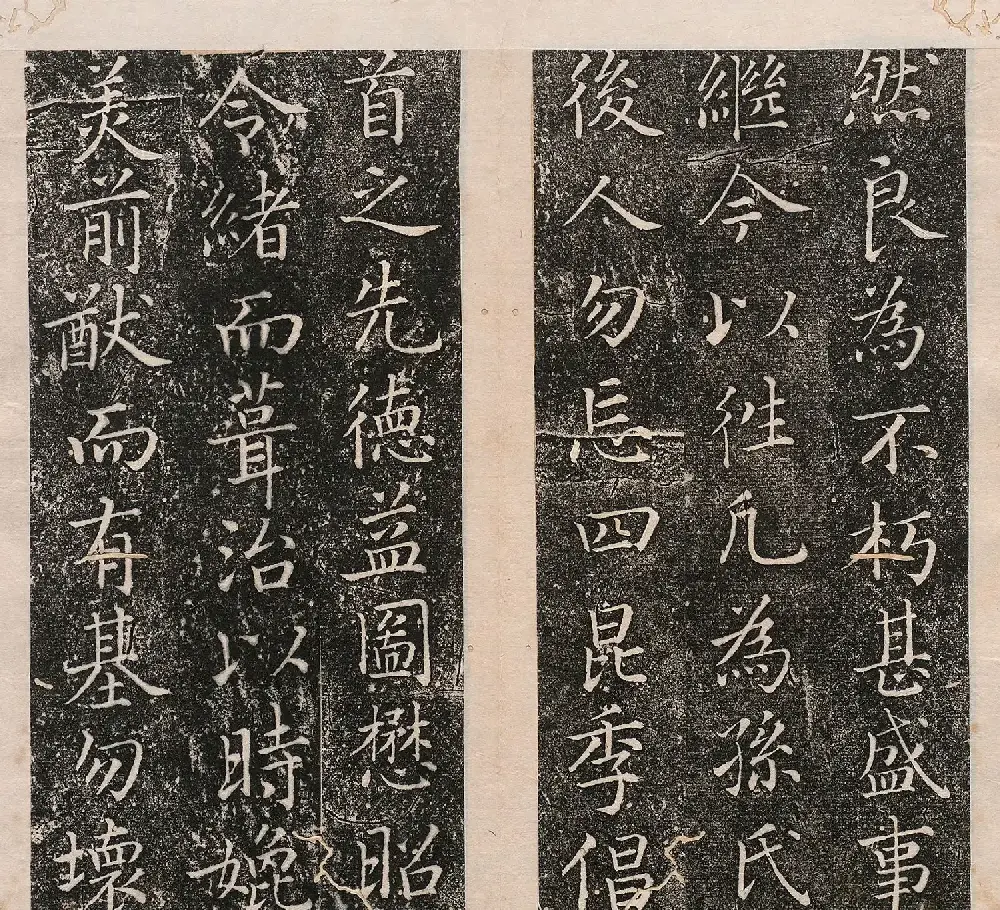 然良為不朽甚盛事
繼今以往凡為孫氏
後人勿忘四昆季倡
首之先德益圖懋昭
令緒而葺治以時媲
美前猷而有基勿壞